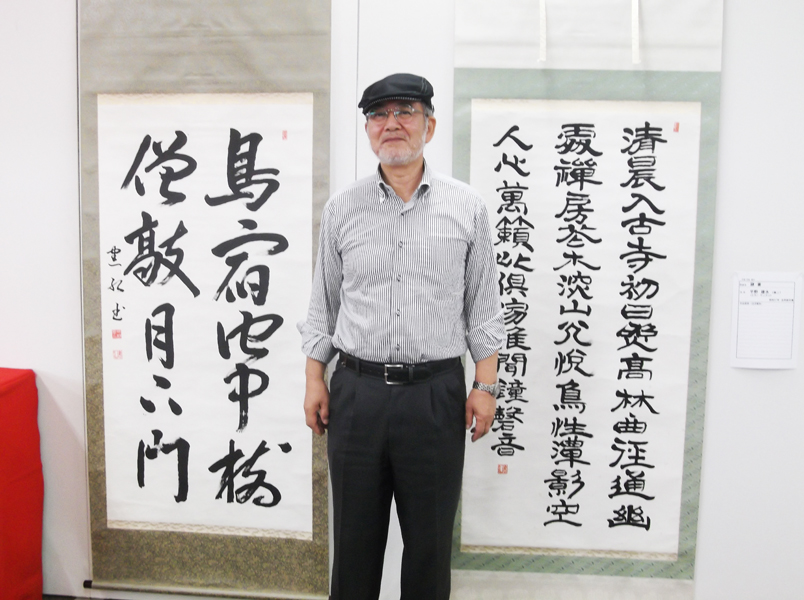 清晨入古寺初日照高林曲徑通幽
處禪房花木深山光悅鳥性潭影空
人心萬籟此俱寂惟聞鐘磬音
鳥宿池中樹
僧敲月下門